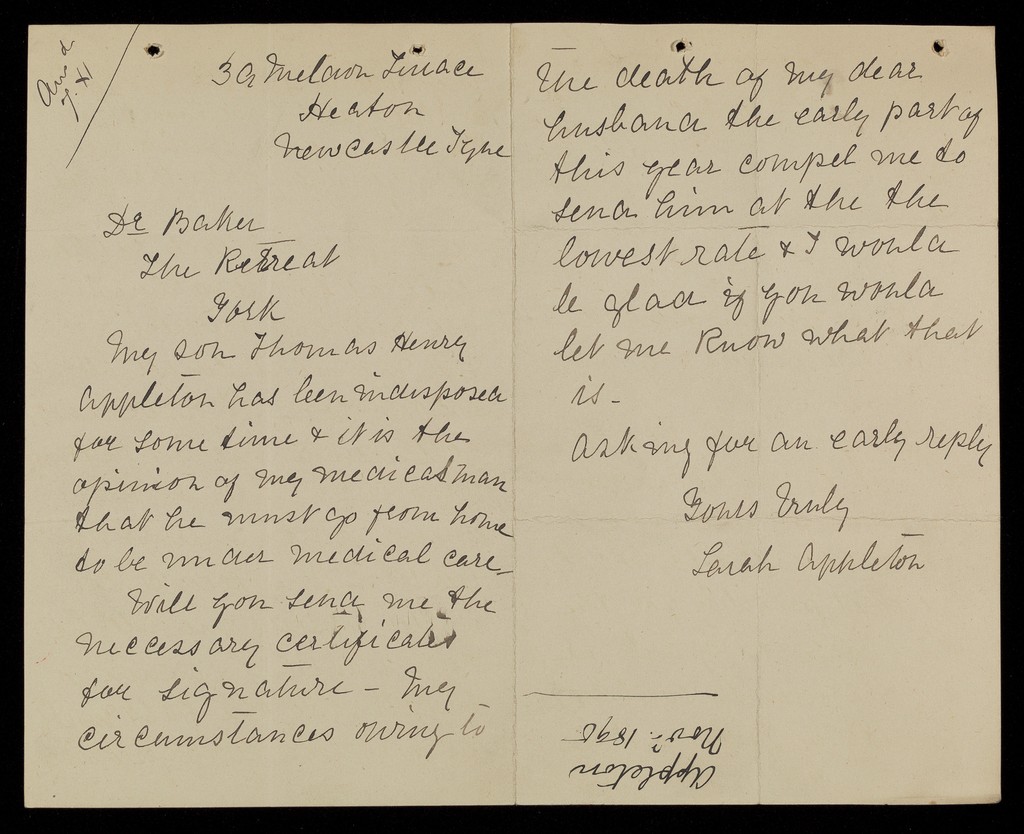 Ansd
39 Meldon Terrace
Heaton
Newcastle Tyne
Dr Baker
The Retreat
York
My son Thomas Henry
Appleton has been indisposed
for some time & it is the
opinion of my medical man
that he must go from home
to be under medical care -
Will you send me the
neccessary certificates
for signature - My
circumstances owing to
the death of my dear
husband the early part of
this year compel me to
send him at the the
lowest rate & I would
be glad if you would
let me know what that
is -
Asking for an early reply
Yours truly
Sarah Appleton
Appleton
Novr